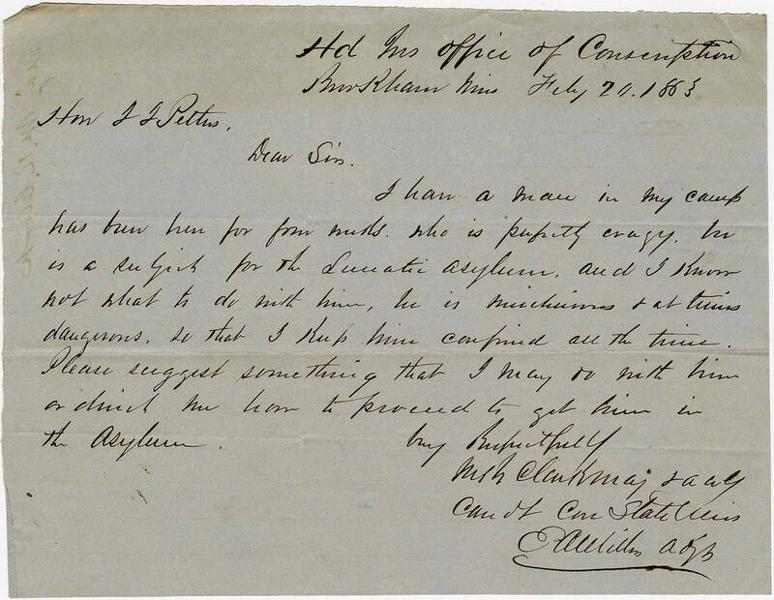 Hd Qrs office of Conscription
Brookhaven Miss Feby 20. 1863
Hon J J Pettus.
Dear Sir.
I have a man in my camp
has been here for four weeks. who is perfectly crazy. he
is a subject for the Lunatic Asylum. and I know
not what to do with him, he is mischievous & at times
dangerous. so that I keep him confined all the time.
Please suggest something that I may do with him
or direct me how to proceed to get him in
the Asylum.
Very Respectfully
Clark Maj &
Comdt Con State Miss
Adjt